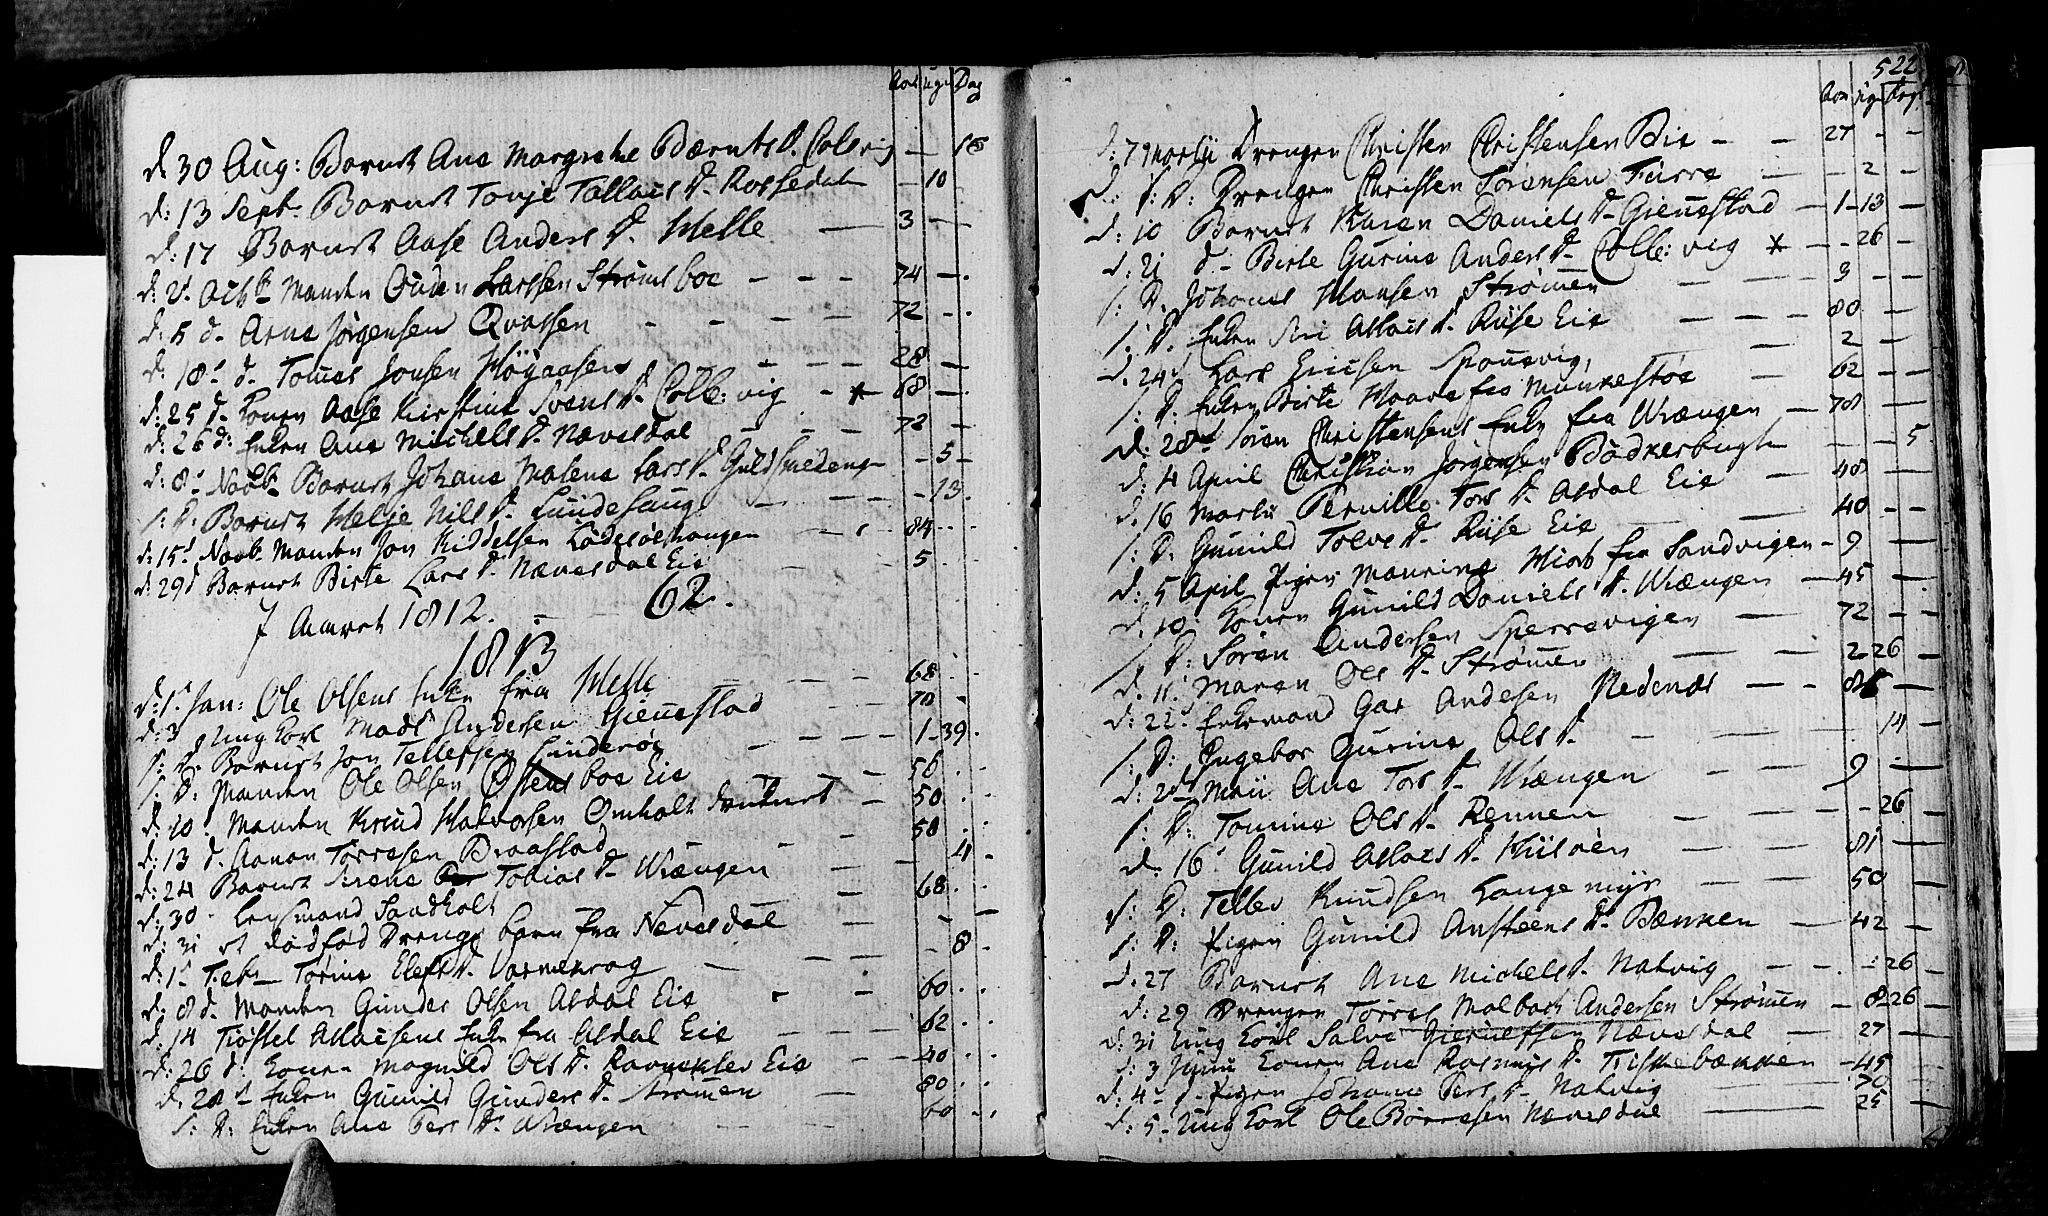 Aar uger Dag
d: 30 Aug: Barnet Ane Margrethe Bærntsd. Colevig — 18
d: 13 Sept. Barnet Tonje Tallacs d. Rossedal — 10 —
d: 17 Barnet Aase Anders d. Melle — 3 —
d: 2d. Octbr Manden Ouden Larssen Strømsboe — — — 74 — .
d: 5 d. Arne Jørgensen Qvassen - - - - 72 - .
d: 18d d. Tomes Jonsen Høgaasen - - - 28 —
d: 25 d. Konen Aase Kirstine Svens d. Colle: vig - * 68 — .
d: 26 d: Enken Ane Michels d. Nævesdal - - - 72 —
d: 8d Novb. Barnet Johane Malene Lars d. Guldsmedeng - 5 —
s: D. Barnet Helje Nils d. Lundehaug — - 13 .
d: 15d Novb. Manden Jon Kiddelsen 84
d: 29d Barnet Birte Lars d. Nævesdal Eie - - 5
I Aaret 1812. — 62.
1813
d: 1d Jan: Ole Olsens Enke fra Melle - - - 68 —
d: 3d Ung Karl Mads Andersen Giennestad - - 70 -
s: d. Barnet Jon Tellefsen - - - 1 - 39 .
s: D. Manden Ole Olsen Eie — 56 . .
d: 10. Manden Knud Halvorsen Omholt druknet — 50 . .
d: 13 d. Aanon Torresen Braastad - 50 . .
d: 24 Barnet Anene Tobias d. Wrængen — 4 -
d: 30 Lensmand Sandholt — 68 . .
d: 31 et dødfød Drenge barn fra Nævesdal — - —
d: 1d Febr. Torine Elefs d. — - 8 -
d: 8 d. Manden Gunder Olsen Asdal Eie - — 60 . .
d: 14 Trøssel Allacsens Enke fra Asdal Eie - - - 62 . .
d: 26 d: Konen Magnild Ols d. Eie — - 40 . .
d: 28d Enken Gunild Gunders d. Strømen — 80 . .
s: D: Enken Ane Pers d. Wrængen — — — 60 - .
522
Aar uger Dage
d: 7 Martii Drengen Christen Christensen Bie - — 27 - -
d: s: D: Drengen Christen Sørensen Furre — - 2 - —
d: 10 Barnet Karen Daniels d. Giennestad — 1 - 13 —
d: 21 d - Birte Gurine Anders d. Colle: vig * — - 26 —
s: D. Johanes Hansen Strømen — — 3 - —
s: D. Enken Siri Allacs d. Riise Eie — — 80 - —
d. 24d Lars Ericsen Spornevig — 2 - —
s: D. Enken Birte Haave fra Munkestøe — 62 - —
d: 28d Søren Christensens Enke fra Wrængen — 78 - —
d: 4 April Christian Jørgensen Bødkerbugt — - - 5
d. 16 Martii Pernille Tors d. Asdal Eie — 48 - —
s: D: Gunild Tolvs d. Riise Eie — — 40 - -
d: 5 April Pigen Maurine fra Sandvigen - 9 —
d: 10: Konen Gunild Daniels d. Wrængen — 45 - —
s: D: Søren Andersen Sperrevigen — 72 - —
d. 11d Maren Ols d. Strømen — — 2 - 26 —
d: 22d Enkemand Gar Andesen Nedenæs — - 86 - —
s: D: Ingebor Gurine Ols d. — — — 14 —
d: 2d Maii Ane Tors d. Wrængen — — 9 —
s: D: Tomine Ols d. Rennen — — - - 26 —
d. 16d Gunild Allacs d. — — 81 —
s: D: Tellev Knudsen Langemyr — — 50 - —
s: D: Pigen Gunild Ansteens d. Bænken — 42 - —
d. 27 Barnet Ane Michels d. Natvig — - - 26 —
d: 29 Drengen Torres Malbach Andersen Strømen — 8 - 26 —
d: 31 Ung Karl Salve Nævesdal — 27 - —
d: 3 Junii Konen Ane Rasmus d. Fiskebækken — 45 —
d: 4d d. Pigen Johane Pers d. Natvig — 70 —
d: 5 - Ung Karl Ole Børresen Nævesdal — 25 - —